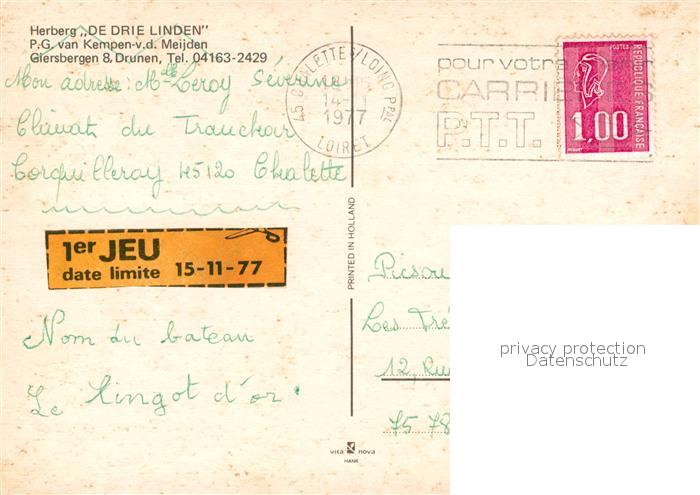 Herberg „DE DRIE LINDEN"
P.G. van Kempen-v.d. Meijden
Giersbergen 8, Drunen, Tel. 04163-2429
Mon adresse: Mlle Leroy Séverine
Clavat du Trauchar
Corquilleroy 45120 Chalette
1er JEU
date limite 15-11-77
Nom du bateau
Le lingot d'or.
45 CHALETTE S/LOING PPAL
14-
1977
LOIRET
pour votre
CARRIERES
P.T.T.
POSTES
REPUBLIQUE FRANÇAISE
1,00
PRINTED IN HOLLAND
Picsou
Les Tré
12, Ru
75 78
privacy protection
Datenschutz
vita nova
HANK